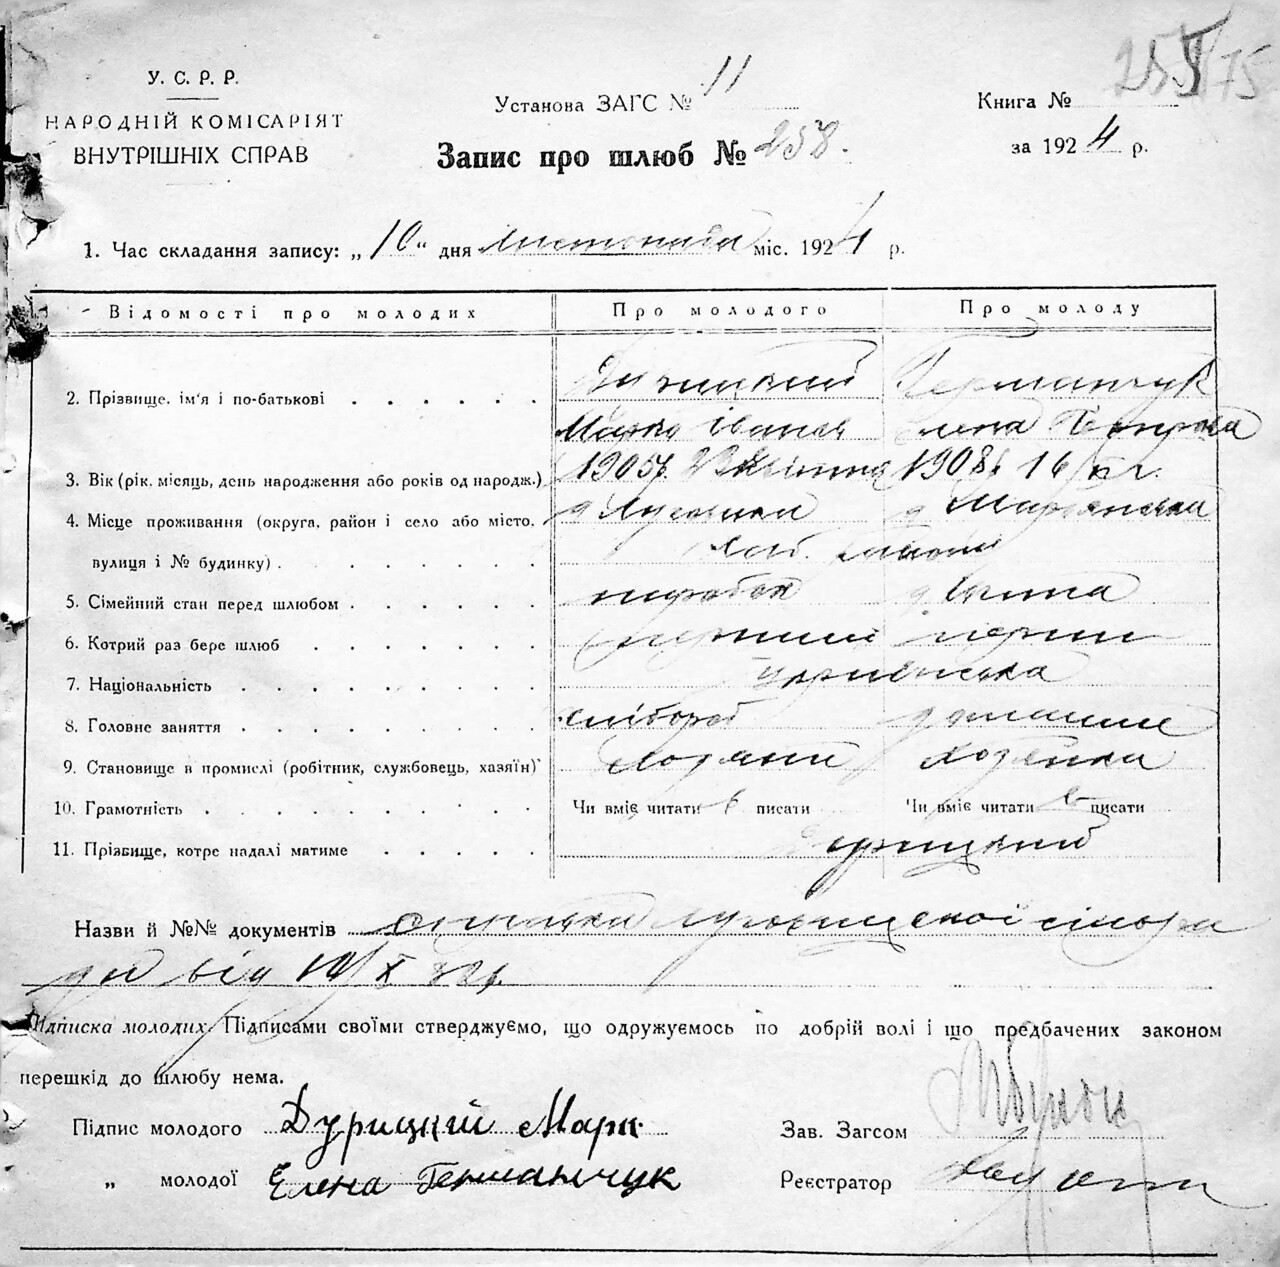 У. С. Р. Р.
НАРОДНІЙ КОМІСАРІЯТ
ВНУТРІШНІХ СПРАВ
Установа ЗАГС № 11
Запис про шлюб № 258.
Книга №
за 1924 р.
1. Час складання запису: „10“ дня листопада міс. 1924 р.
Відомості про молодих Про молодого Про молоду
Германчук
2. Прізвище, ім'я і по-батькові
Марко Іванов Елена Петрова
3. Вік (рік, місяць, день народження або років од народж.) 1905 р. 23 квітня 1908 р. 16
4. Місце проживання (округа, район і село або місто,
вулиця і № будинку)
5. Сімейний стан перед шлюбом парубок дівчина
6. Котрий раз бере шлюб перший перший
7. Національність українська
8. Головне заняття хлібороб домашнє
9. Становище в промислі (робітник, службовець, хазяїн) хозяйка
10. Грамотність Чи вміє читати писати Чи вміє читати писати
11. Прізвище, котре надалі матиме Дурицкий
Назви й №№ документів
від 10/X 24 р.
Підписка молодих. Підписами своїми стверджуємо, що одружуємось по добрій волі і що предбачених законом
перешкід до шлюбу нема.
Підпис молодого Дурицкий Марк
„ молодої Елена Германчук
Зав. Загсом
Реєстратор